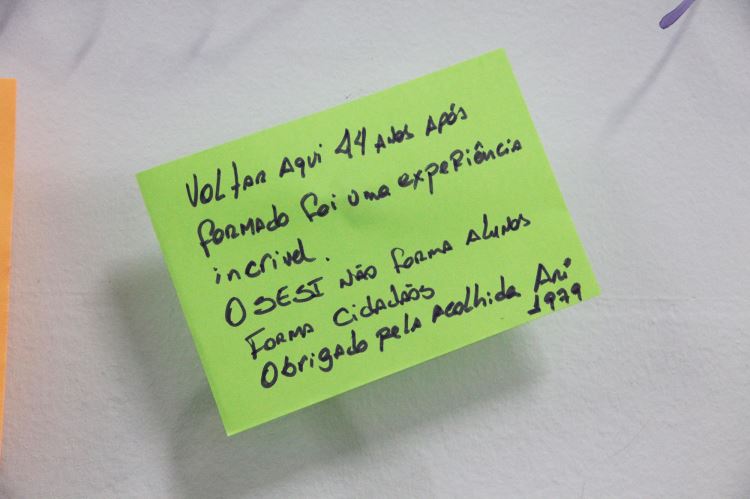 Voltar aqui 44 anos após
formado foi uma experiência
incrivel.
O SESI não forma alunos
Forma cidadãos
Obrigado pela acolhida Ari
1979